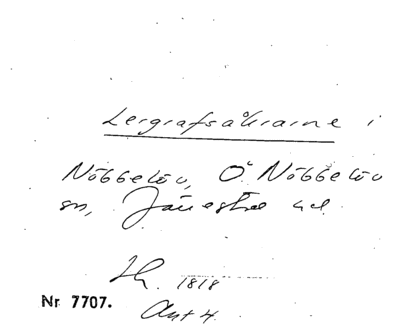 Lergrafsåkrarne i
Nöbbelöv, Ö Nöbbelöv
sn, Järrestad hd.
Lh. 1818
Nr 7707.
Akt 4.